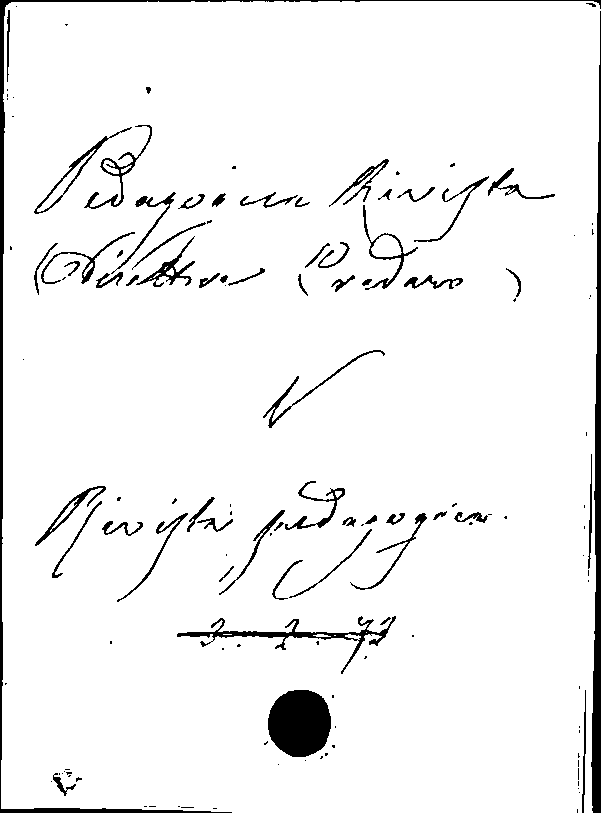 Pedagogica Rivista
(Direttore Credaro)
V
Rivista pedagogica.
3. 2. 72